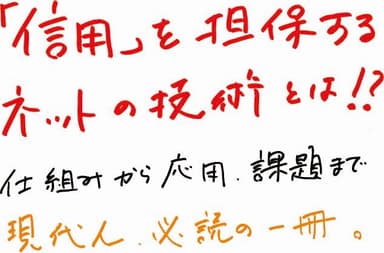 「信用」を担保する
ネットの技術とは!?
仕組みから応用、課題まで
現代人、必読の一冊。